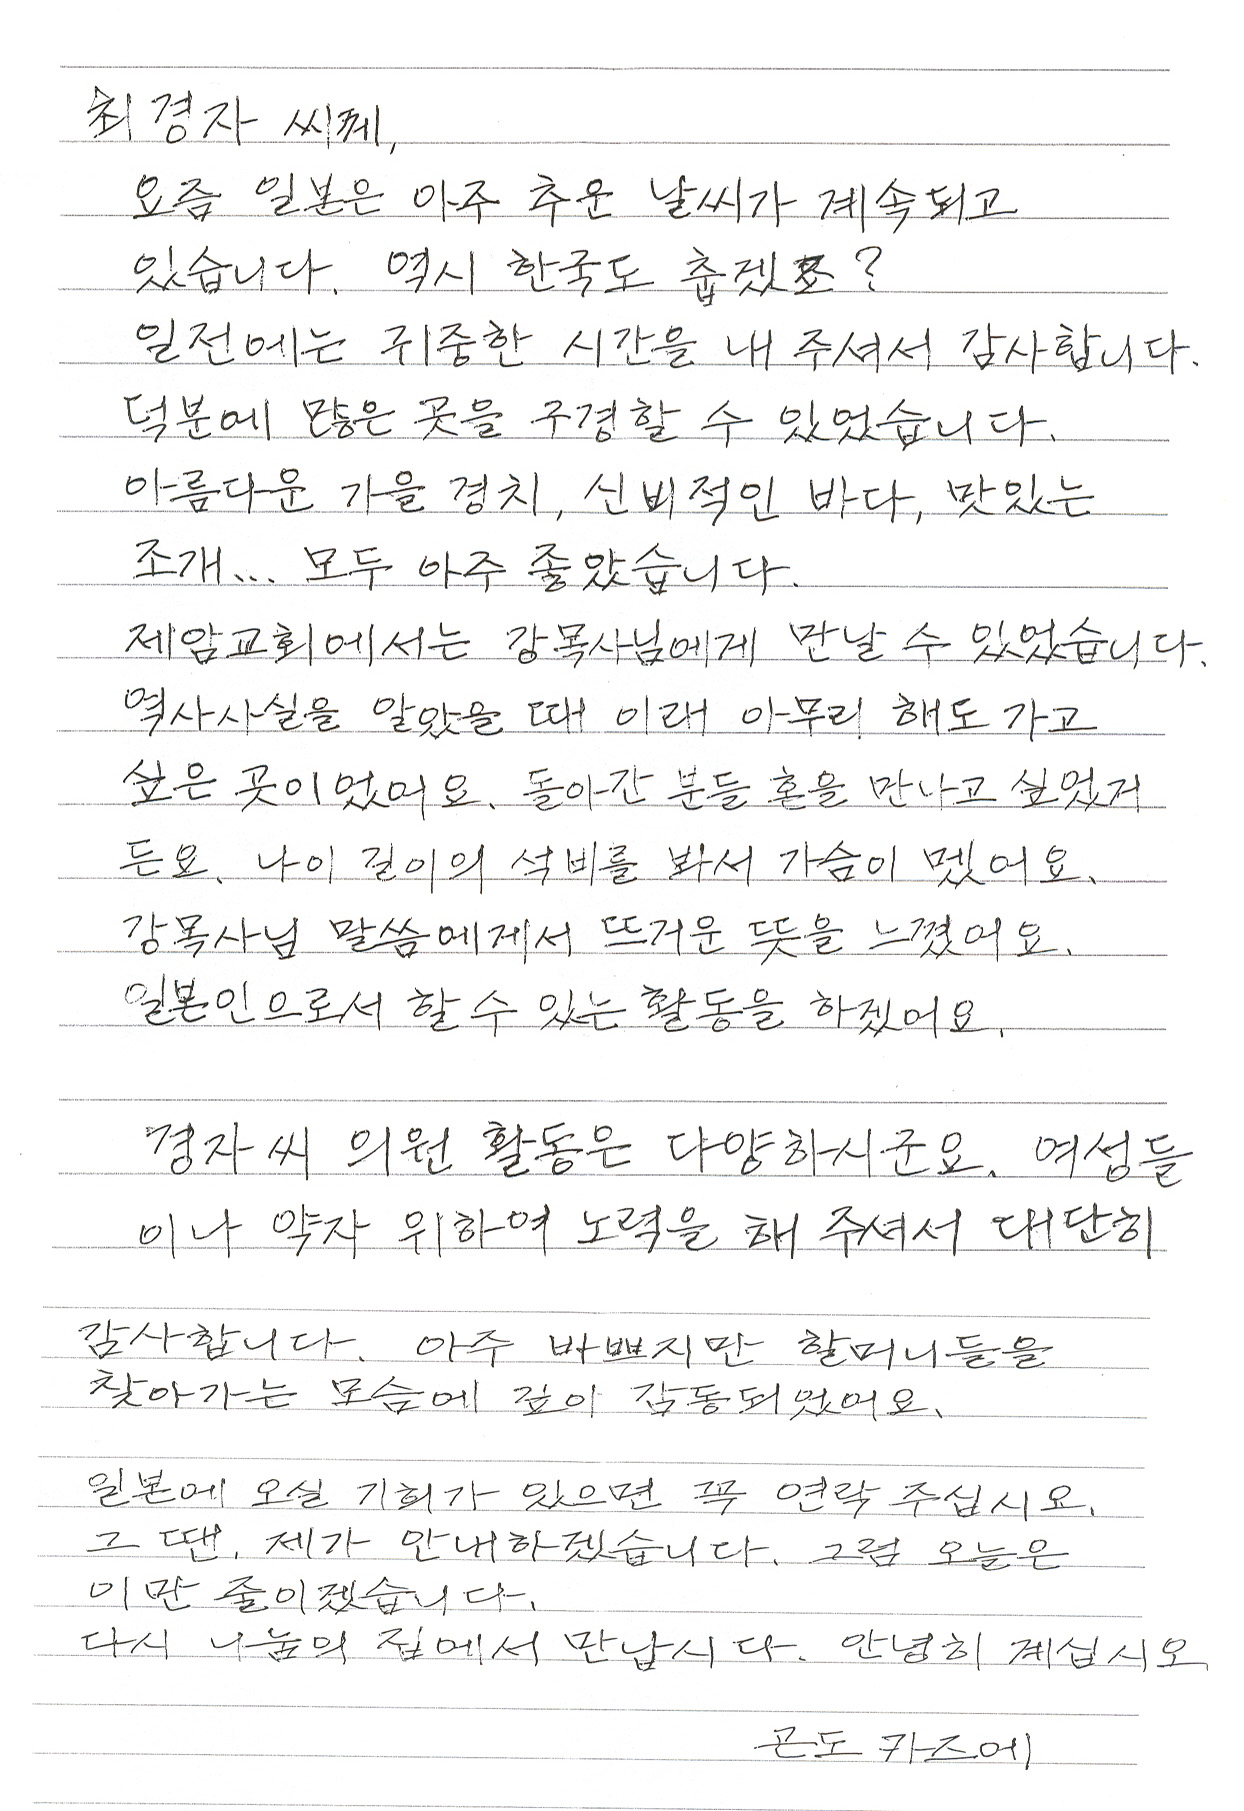 최경자 씨께,
요즘 일본은 아주 추운 날씨가 계속되고
있습니다. 역시 한국도 춥겠죠?
일전에는 귀중한 시간을 내 주셔서 감사합니다.
덕분에 많은 곳을 구경할 수 있었습니다.
아름다운 가을 경치, 신비적인 바다, 맛있는
조개... 모두 아주 좋았습니다.
제암교회에서는 강목사님에게 만날 수 있었습니다.
역사사실을 알았을 때 이래 아무리 해도 가고
싶은 곳이었어요. 돌아간 분들 혼을 만나고 싶었거
든요. 나이 걸이의 석비를 봐서 가슴이 멨어요.
강목사님 말씀에게서 뜨거운 뜻을 느꼈어요.
일본인으로서 할 수 있는 활동을 하겠어요.
경자씨 의원 활동은 다양하시군요. 여성들
이나 약자 위하여 노력을 해 주셔서 대단히
감사합니다. 아주 바쁘지만 할머니들을
찾아가는 모습에 깊이 감동되었어요.
일본에 오실 기회가 있으면 꼭 연락 주십시요.
그 땐, 제가 안내하겠습니다. 그럼 오늘은
이만 줄이겠습니다.
다시 나눔의 집에서 만납시다. 안녕히 계십시오.
곤도 카즈에